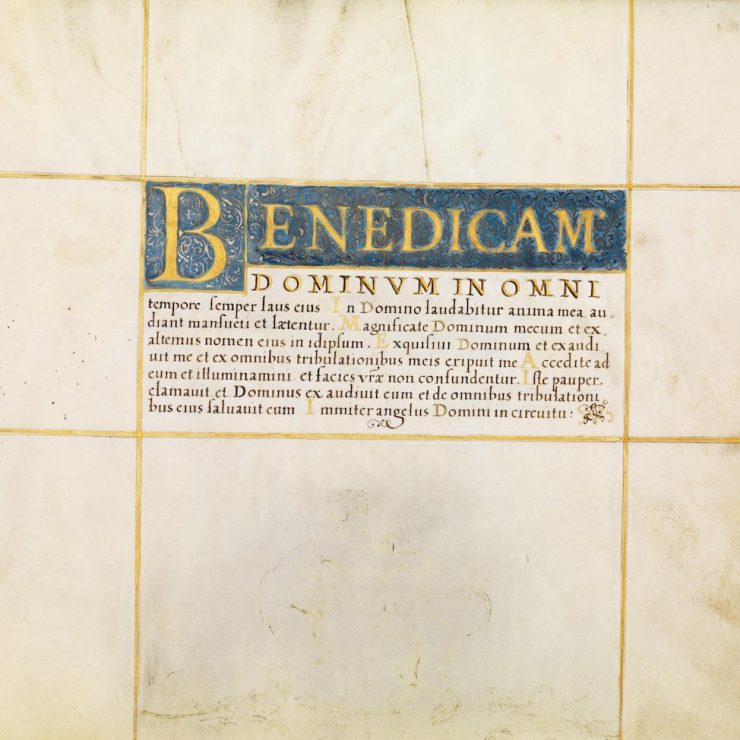 BENEDICAM
DOMINVM IN OMNI
tempore semper laus eius In Domino laudabitur anima mea au„
diant mansueti et lætentur. Magnificate Dominum mecum et ex„
altemus nomen eius in idipsum. Exquisiui Dominum et exaudi
uit me et ex omnibus tribulationibus meis eripuit me Accedite ad
eum et illuminamini et facies vr̃æ non confundentur. Iste pauper
clamauit et Dominus exaudiuit eum et de omnibus tribulationi
bus eius saluauit eum Immiter angelus Domini in circuitu: